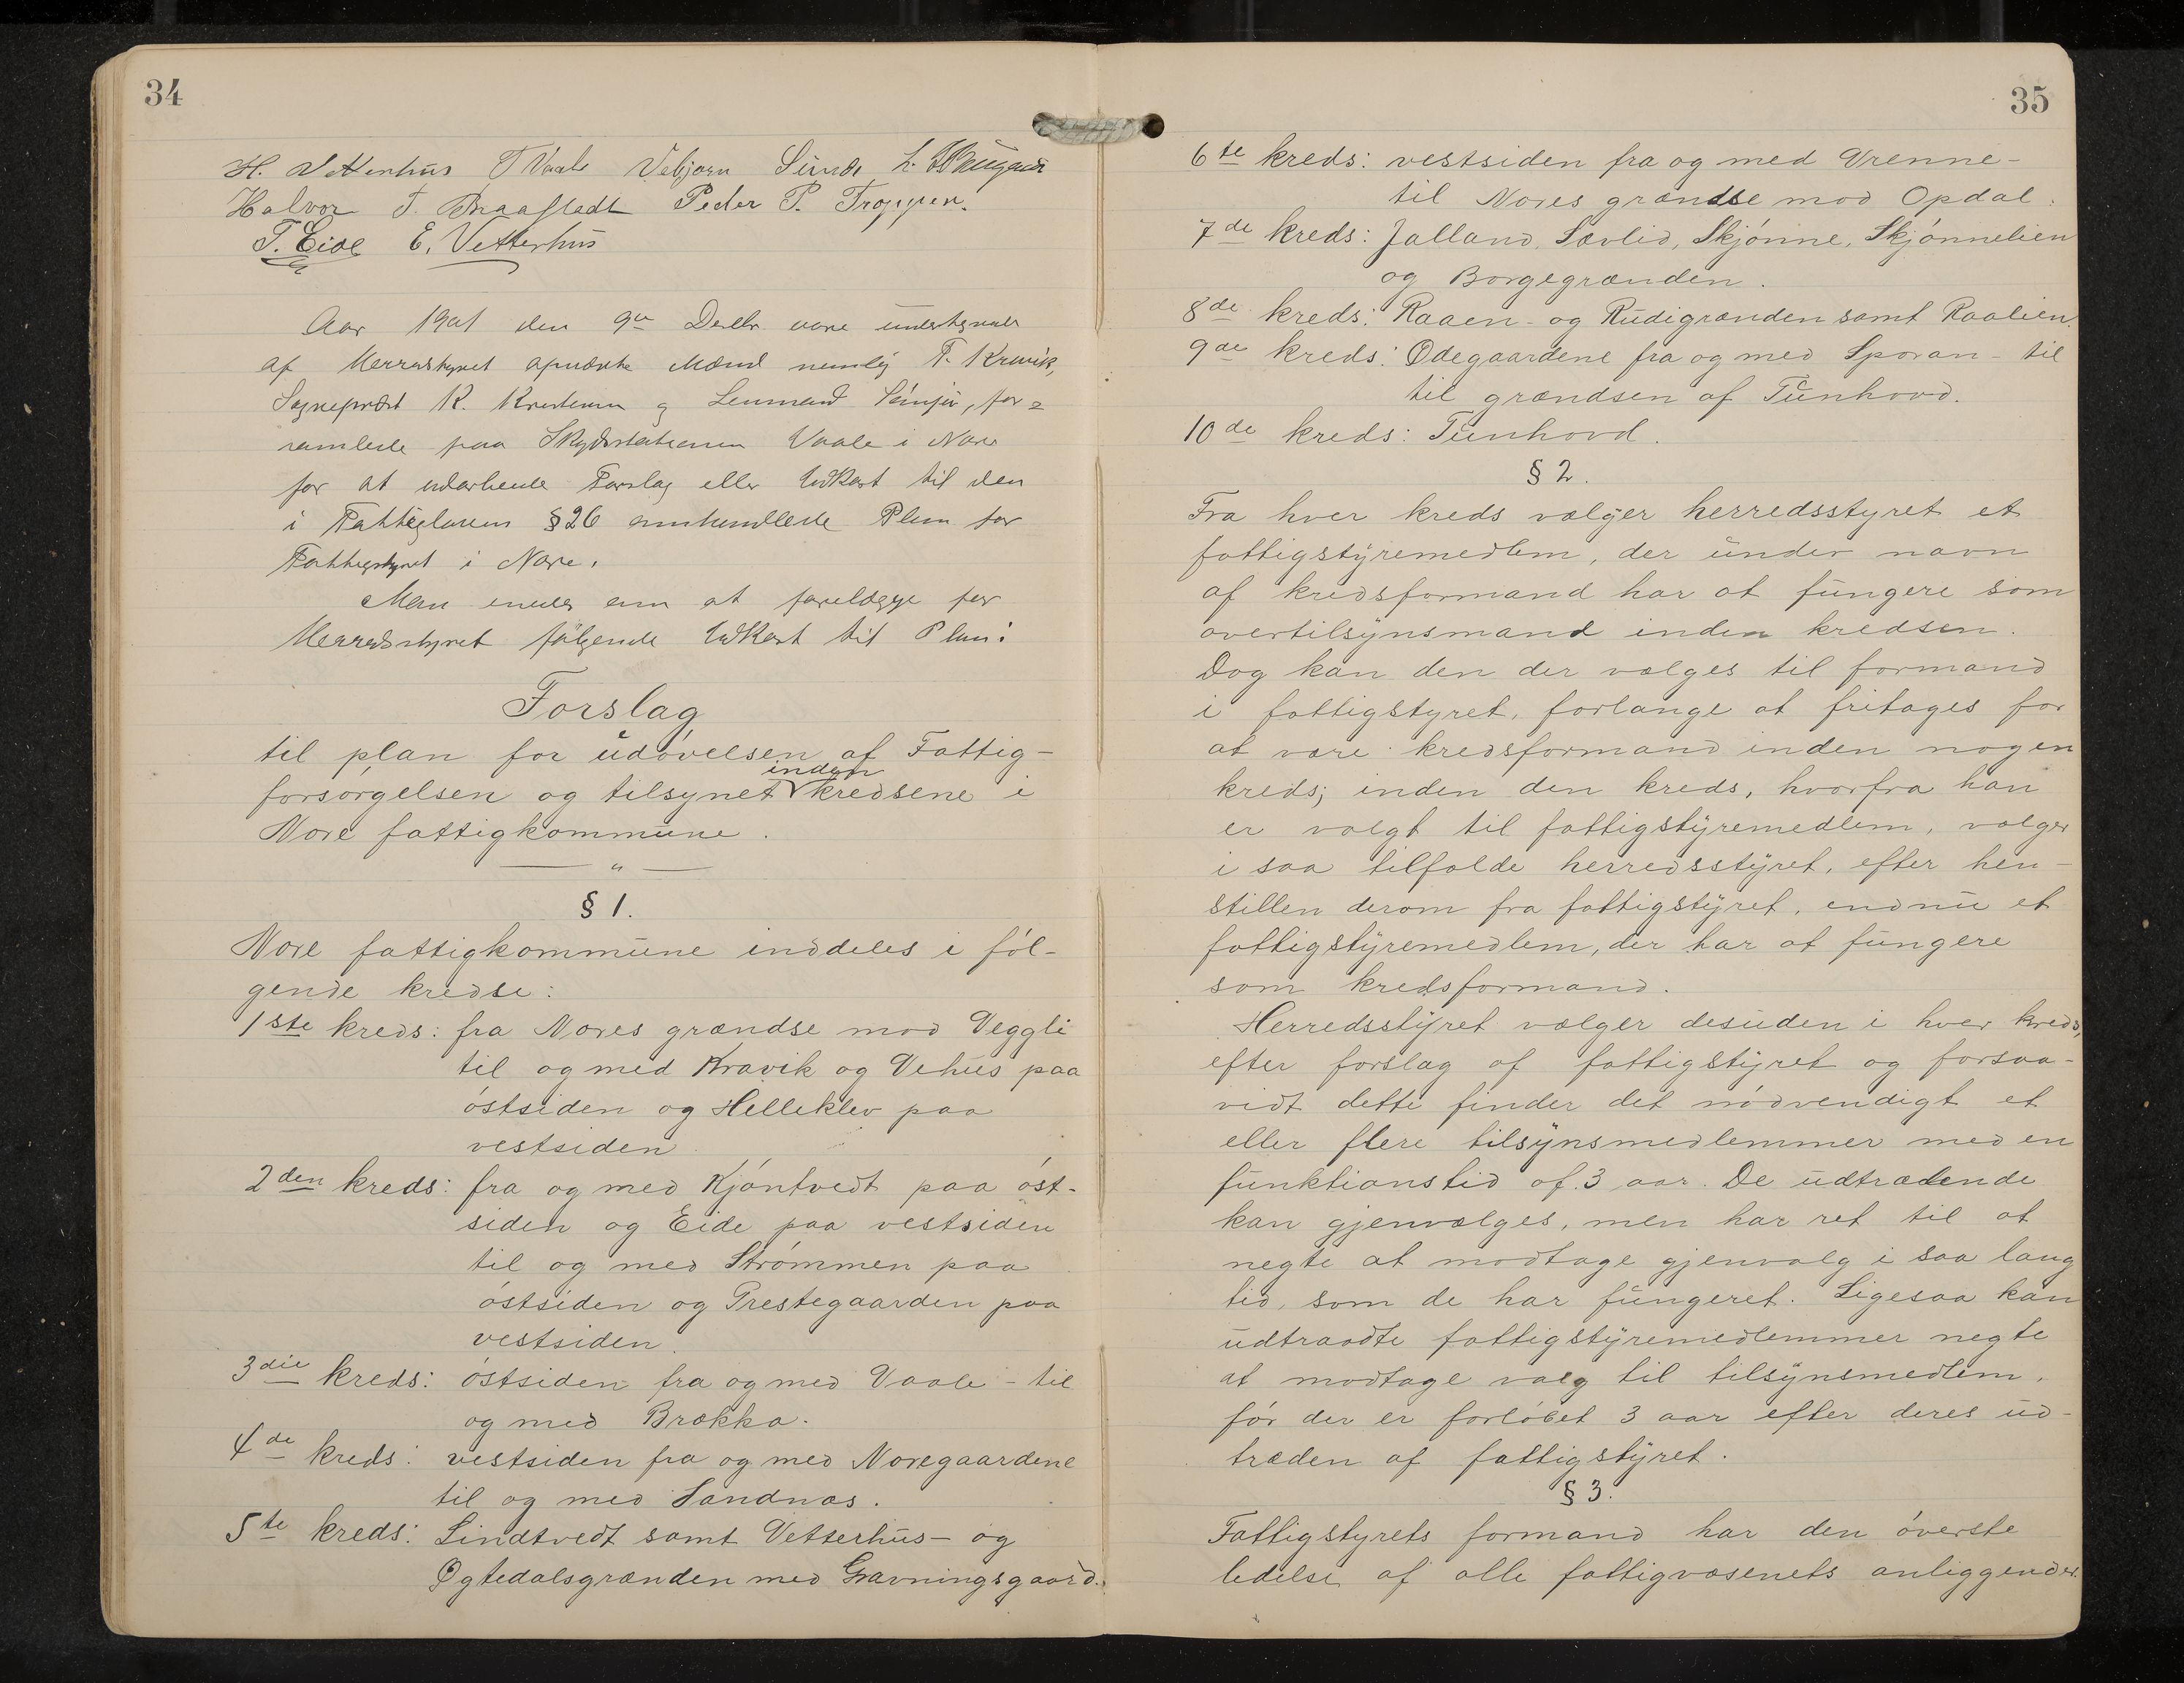 34
H. Vetterhus T Vaale Vebjørn Sunde
Halvor T. Braastadt Peder P. Troppen.
T. Eide E. Vetterhus
Aar 1901 den 9de Decbr vare undertegnede
af Herredstyret opnævnte Mænd nemlig T. Kravik,
Sogneprest K. Kristensen og Lensmand, for=
samlede paa Skydsstationen Vaale i Nore
for at udarbeide Forslag eller Udkast til den
i Fattigloven § 26 omhandlede Plan for
Fattigstyret i Nore.
Man enedes om at forelægge for
Herredstyret følgende Udkast til Plan:
Forslag
til plan for udøvelsen af Fattig-
inden
forsørgelsen og tilsynet kredsene i
Nore fattigkommune.
— " —
§ 1.
Nore fattigkommune inddeles i føl-
gende kredse:
1ste kreds: fra Nores grændse mod Veggli
til og med Kravik og Vehus paa
østsiden og Helleklev paa
vestsiden
2den kreds: fra og med Kjøntvedt paa øst-
siden og Eide paa vestsiden
til og med Strømmen paa
østsiden og Prestegaarden paa
vestsiden.
3die kreds: østsiden fra og med Vaale - til
og med Brækka.
4de kreds: vestsiden fra og med Noregaardene
til og med Sandnæs.
5te kreds: Lindtvedt samt Vetterhus- og
Øgtedalsgrænden med Gravningsgaard.
35
6te kreds: vestsiden fra og med Vrenne-
til Nores grændse mod Opdal.
7de kreds: Jalland, Sævlid, Skjønne, Skjønnelien
og Borgegrænden.
8de kreds: Raaen- og Rudigrænden samt Raalien.
9de kreds: Ødegaardene fra og med Sporan - til
til grændsen af Tunhovd.
10de kreds: Tunhovd.
§ 2.
Fra hver kreds vælger herredsstyret et
fattigstyremedlem, der under navn
af kredsformand har at fungere som
overtilsynsmand inden kredsen.
Dog kan den der vælges til formand
i fattigstyret, forlange at fritages for
at være kredsformand inden nogen
kreds; inden den kreds, hvorfra han
er valgt til fattigstyremedlem, vælger
i saa tilfælde herredsstyret, efter hen-
stillen derom fra fattigstyret, endnu et
fattigstyremedlem, der har at fungere
som kredsformand.
Herredsstyret vælger desuden i hver kreds,
efter forslag af fattigstyret og forsaa-
vidt dette finder det nødvendigt et
eller flere tilsynsmedlemmer med en
funktionstid af 3 aar. De udtrædende
kan gjenvælges, men har ret til at
negte at modtage gjenvalg i saa lang
tid, som de har fungeret. Ligesaa kan
udtraadte fattigstyremedlemmer negte
at modtage valg til tilsynsmedlem,
før der er forløbet 3 aar efter deres ud-
træden af fattigstyret.
§ 3.
Fattigstyrets formand har den øverste
ledelse af alle fattigvæsenets anliggender.